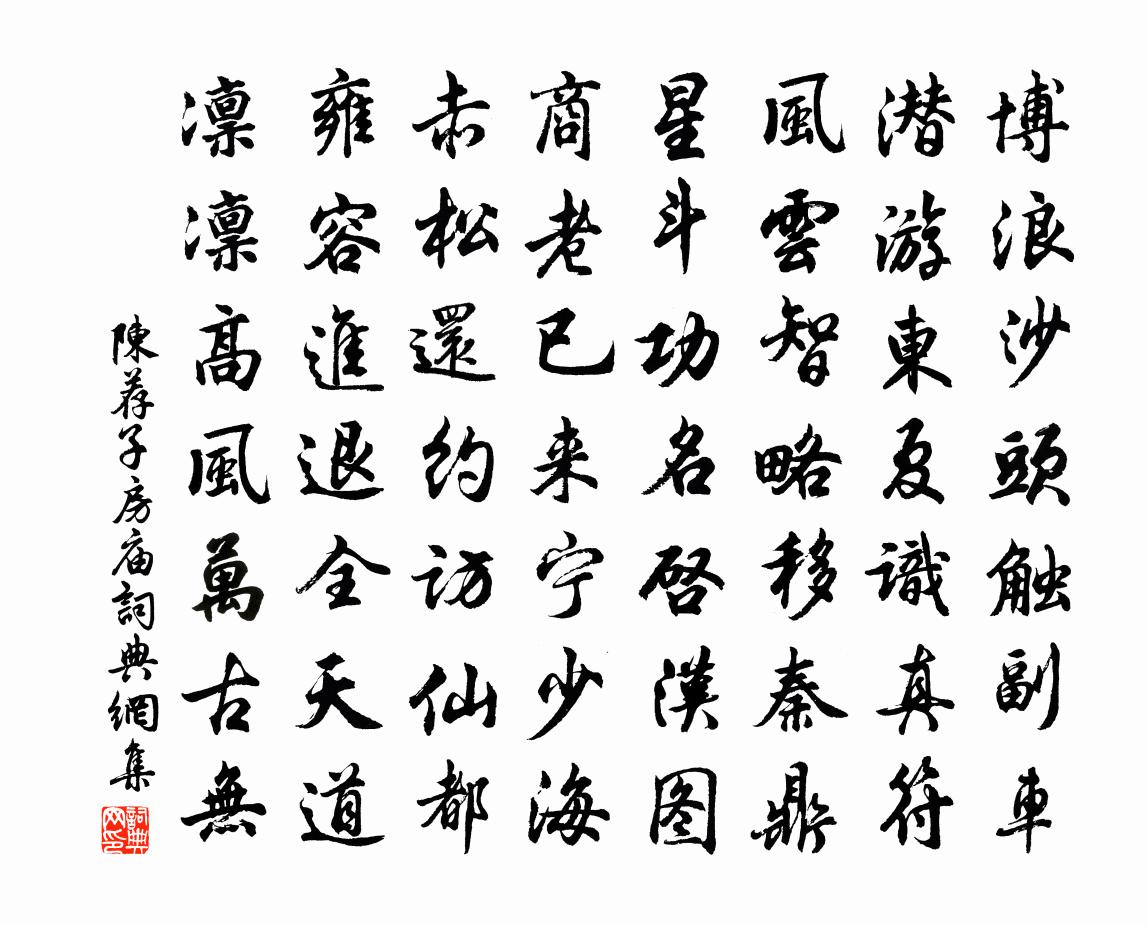 博浪沙頭触副車
潜游東夏識真符
風雲智略移秦鼎
星斗功名啓漢图
商老已来宁少海
赤松還约访仙都
雍容進退全天道
凛凛高風萬古無
陳荐子房庙詞典網集
詞典网印